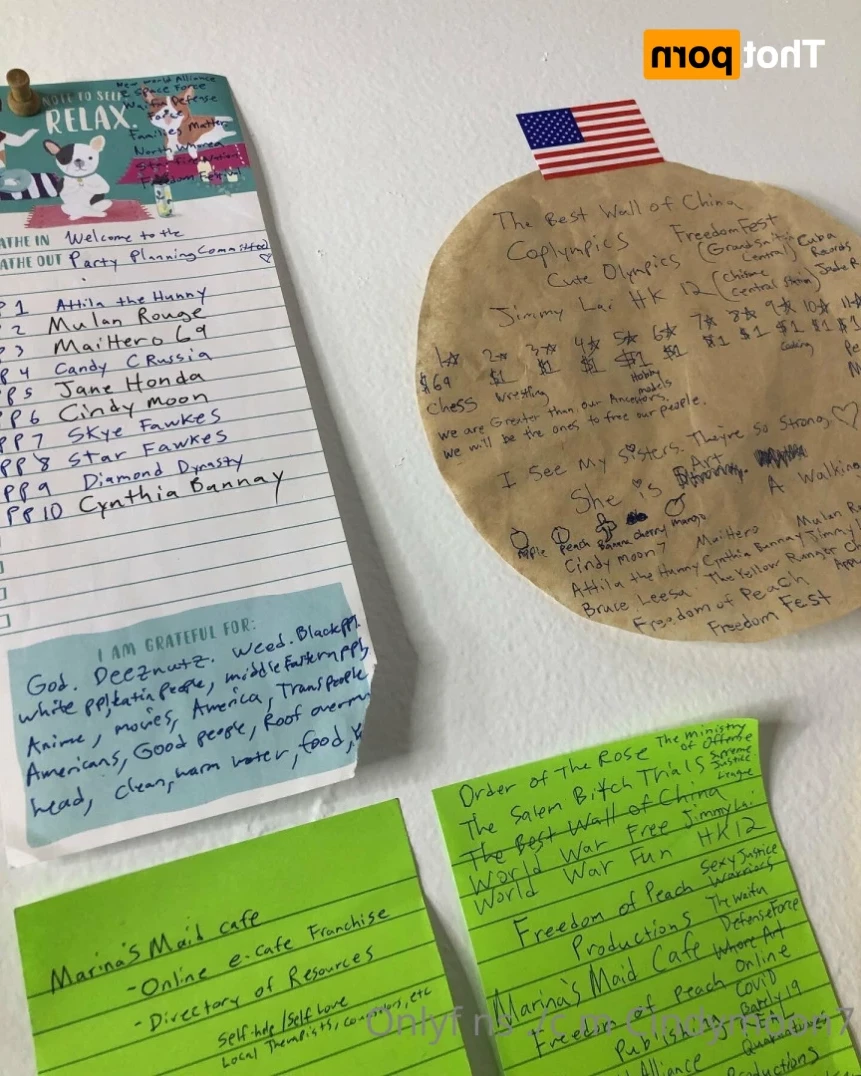 Thot porn
NOTE TO SELF
RELAX.
New World Alliance
Space Force
Waifu Defense
Force
Families Matter
North Whorea
Nation
Freedom Festival
ATHE IN Welcome to the
ATHE OUT Party Planning Committee
P 1 Attila the Hunny
P 2 Mulan Rouge
P 3 MaiHero 69
P 4 Candy C Russia
PP 5 Jane Honda
PP 6 Cindy moon
PP 7 Skye Fawkes
PP 8 Star Fawkes
PP 9 Diamond Dynasty
PP 10 Cynthia Bannay
I AM GRATEFUL FOR:
God. Deeznutz. Weed. Black ppl.
white ppl, Latin People, middle Eastern ppl,
Anime, movies, America, Trans people
Americans, Good people, Roof over my
head, clean, warm water, food,
The Best Wall of China
Coplympics FreedomFest
Cute Olympics (Grand
Central) Cuba
Records
Jimmy Lai HK 12 (Chisme
Central Station) Jade R
1☆ 2☆ 3☆ 4☆ 5☆ 6☆ 7☆ 8☆ 9☆ 10☆ 11☆
$69 $1 $1 $1 $1 $1 $1 $1 $1 $1 $1
Chess Wrestling Hobby
models Cooking
we are Greater than our Ancestors.
we will be the ones to free our people.
I See my Sisters. They're so Strong. ♡
She is Art. A Walkin
Apple Peach Banana cherry mango
Cindy moon 7 MaiHero Mulan Ro
Attila the Hunny Cynthia Bannay Jimmy L
Bruce Leesa The Yellow Ranger
Freedom of Peach
Freedom Fest
Marina's Maid Cafe
- Online e-cafe Franchise
- Directory of Resources
Self help / Self Love
Local Therapists, counselors, etc
Order of The Rose The Ministry
of Offense
The Salem Bitch Trials Supreme
Justice
League
The Best Wall of China
World War Free Jimmy Lai
World War Fun HK 12
Freedom of Peach Sexy Justice
Warriors
Productions The Waifu
Defense Force
Marina's Maid Cafe Whore Art
Freedom of Peach Online
Publishing Covid
Barely 19
Alliance Quarantine
Productions
Onlyf ns ./c m Cindymoon7